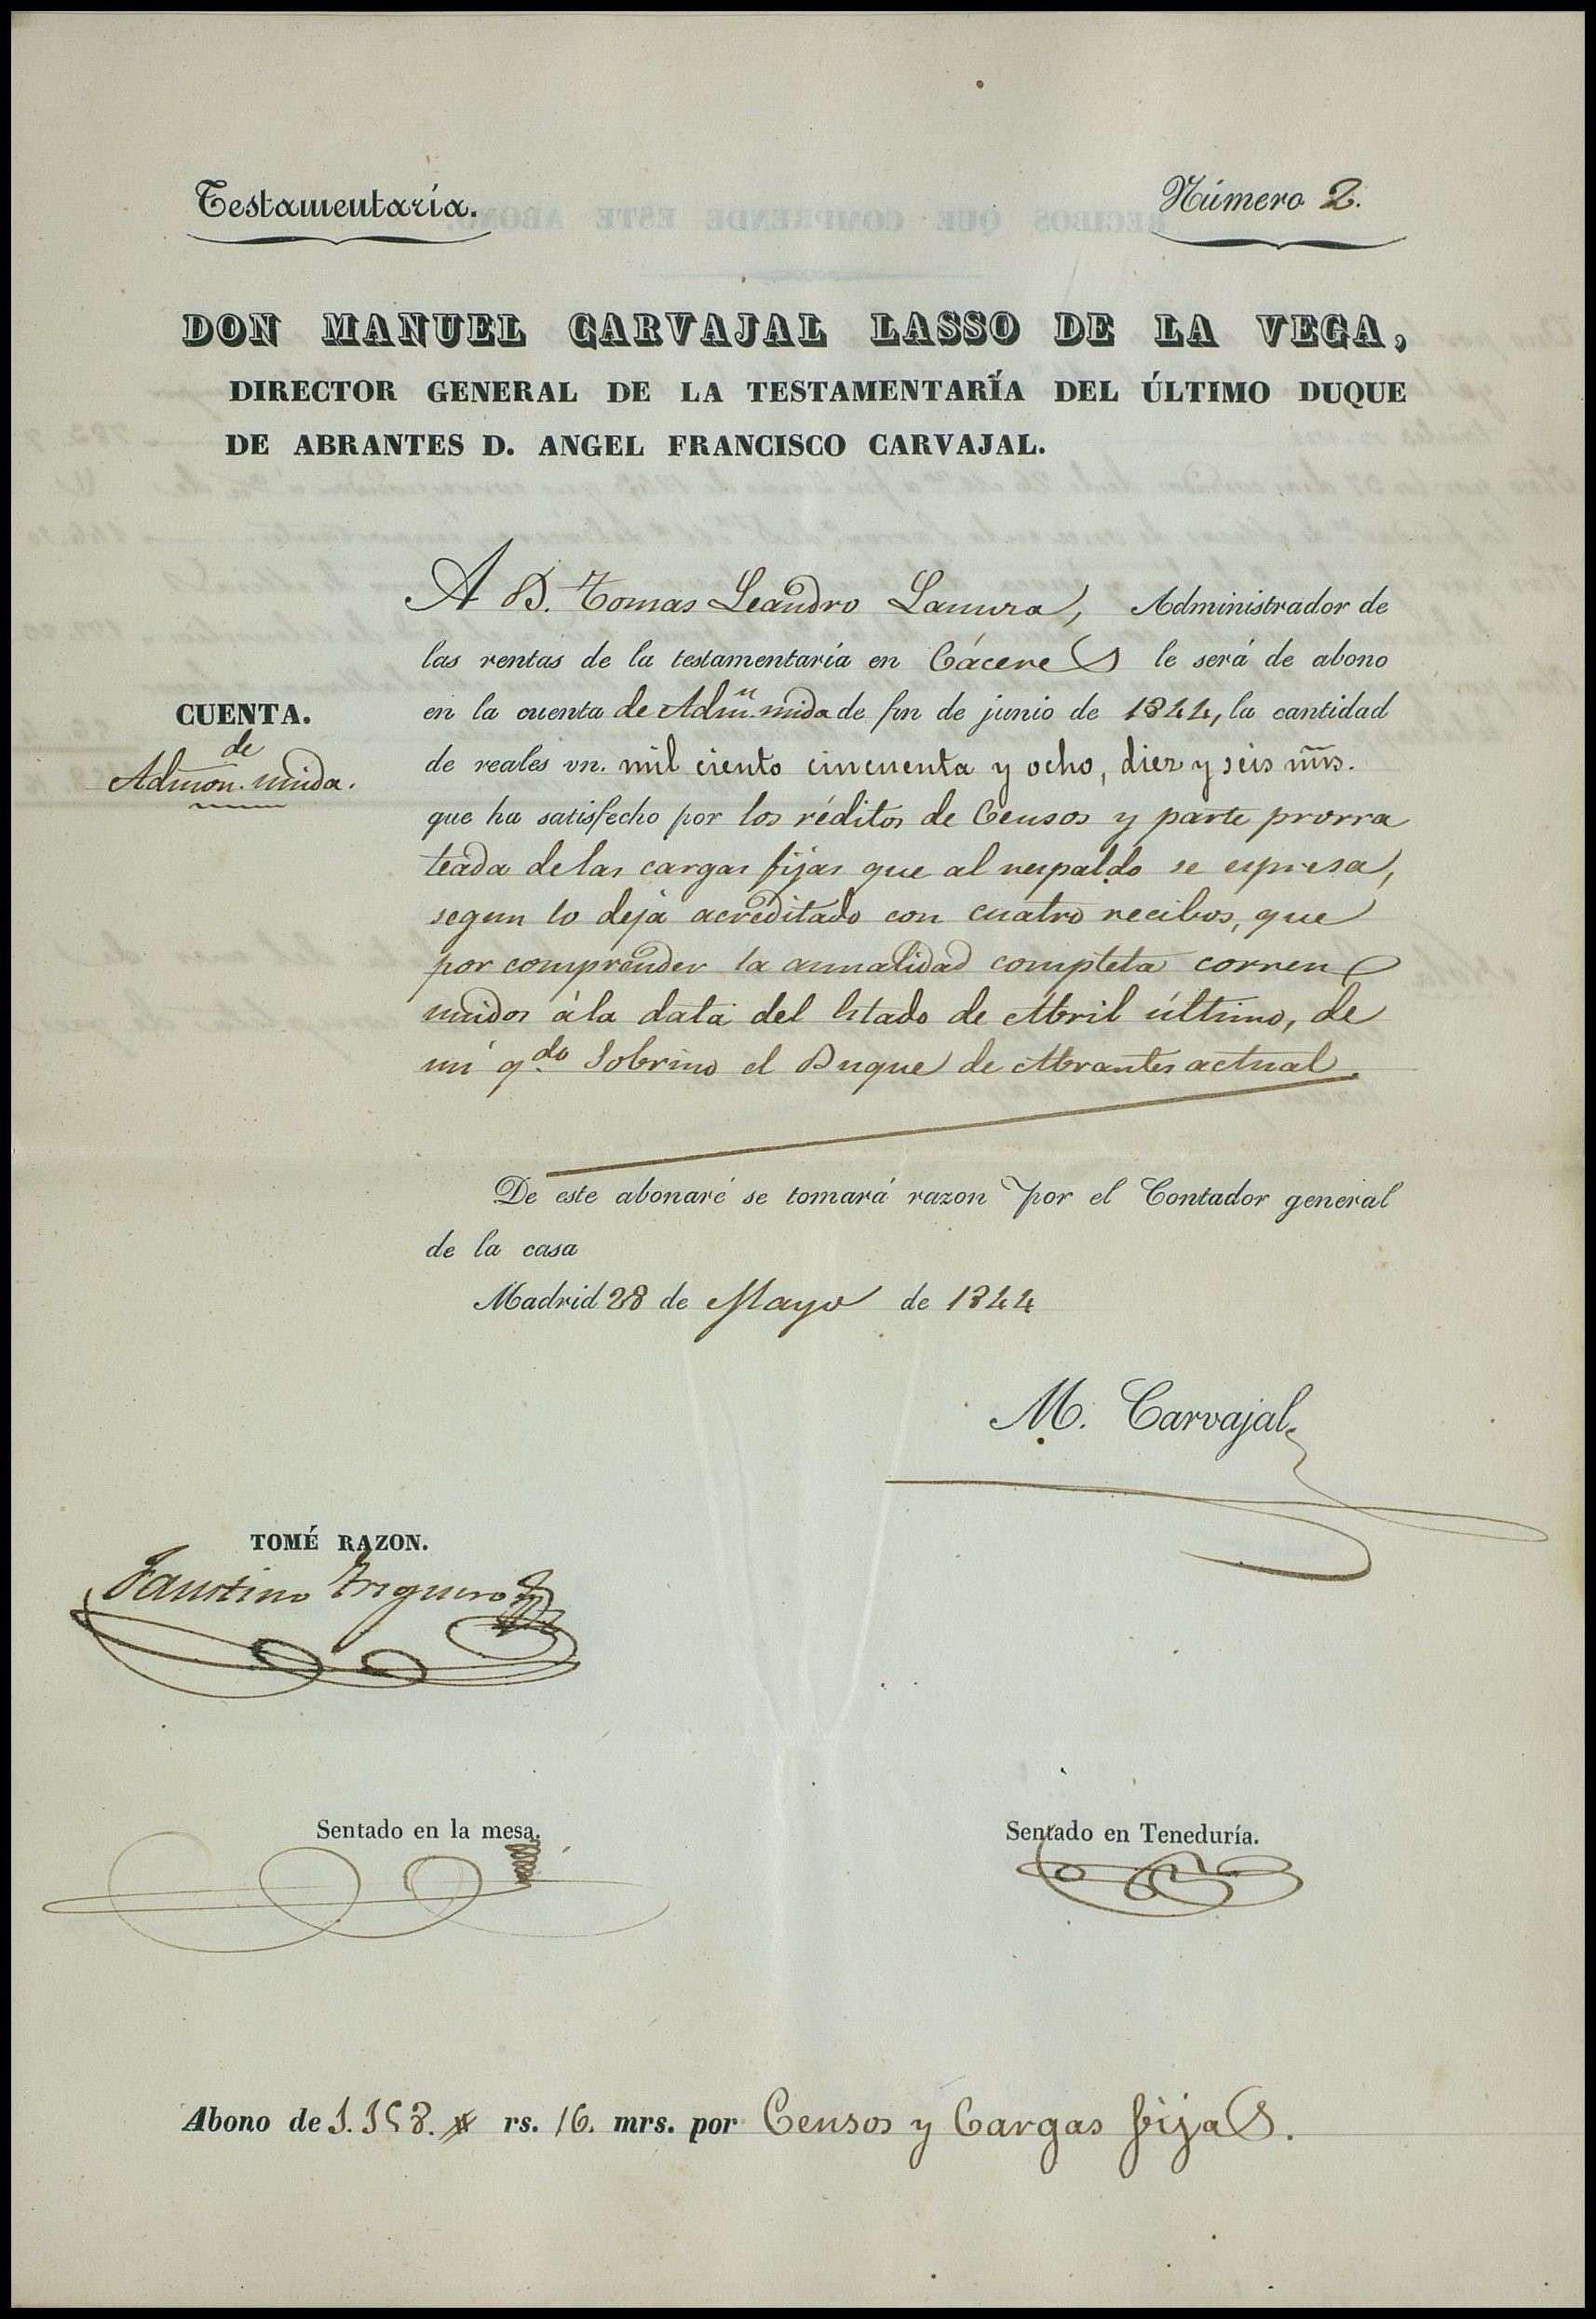 Testamentaría.
Número 2.
DON MANUEL CARVAJAL LASSO DE LA VEGA,
DIRECTOR GENERAL DE LA TESTAMENTARÍA DEL ÚLTIMO DUQUE
DE ABRANTES D. ANGEL FRANCISCO CARVAJAL.
A D. Tomas Leandro Lamura, Administrador de
las rentas de la testamentaría en Cáceres le será de abono
CUENTA.
de
Admon. unida.
en la cuenta de Admn. unida de fin de junio de 1844, la cantidad
de reales vn. mil ciento cincuenta y ocho, diez y seis mrs.
que ha satisfecho por los réditos de Censos y parte prorra
teada de las cargas fijas que al respaldo se espresa,
segun lo deja acreditado con cuatro recibos, que
por comprender la annalidad completa corren
unidos á la data del Estado de Abril último, de
mi qdo. Sobrino el Duque de Abrantes actual.
De este abonaré se tomará razon por el Contador general
de la casa
Madrid 28 de Mayo de 1844
M. Carvajal
TOMÉ RAZON.
Faustino Triguero
Sentado en la mesa.
Sentado en Teneduría.
Abono de 1.158. rs. 16. mrs. por Censos y Cargas fijas.